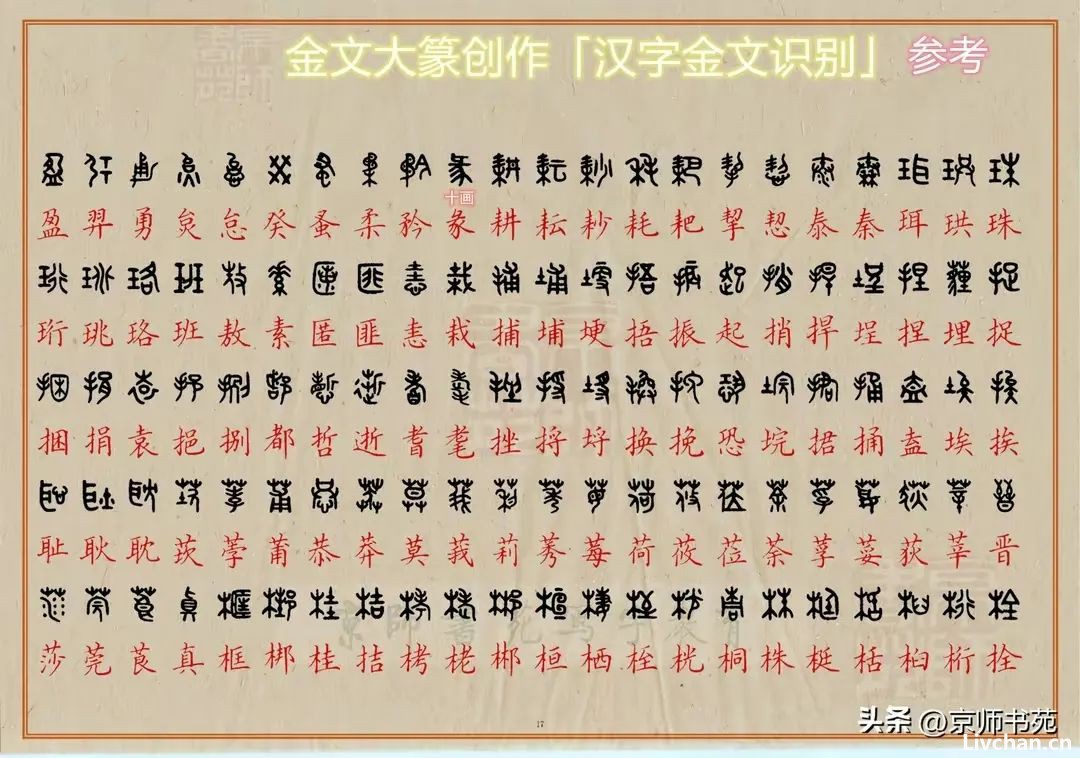 金文大篆创作「汉字金文识别」参考
十画
盈羿勇炱怠癸蚤柔矜彖耕耘耖耗耙挈恝泰秦珥珙珠
珩珧珞班敖素匿匪恚栽捕埔埂捂振起捎捍埕捏埋捉
捆捐袁挹捌都哲逝耆耄挫捋埒换挽恐垸捃捅盍埃挨
耻耿耽莰荸莆恭莽莫莪莉莠莓荷莜莅荼莩荽荻莘晋
莎莞莨真框梆桂桔栲栳郴桓栖桎桄桐株梃栝桕桁栓
17
头条 @京师书苑
Livchan.cn